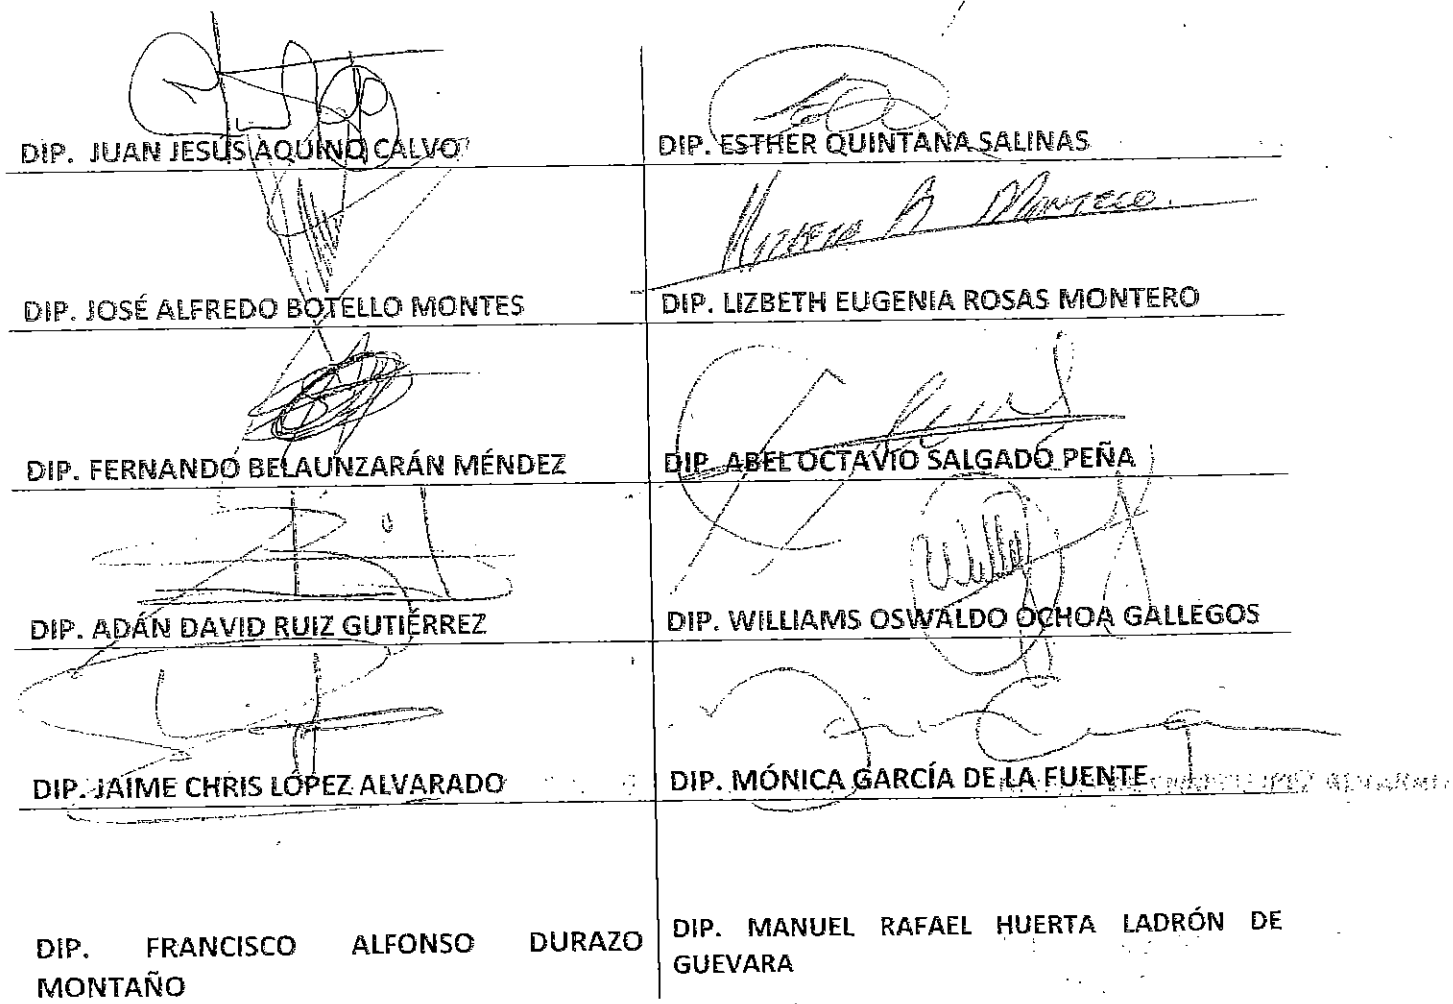 DIP. JUAN JESÚS AQUINO CALVO
DIP. ESTHER QUINTANA SALINAS
DIP. JOSÉ ALFREDO BOTELLO MONTES
DIP. LIZBETH EUGENIA ROSAS MONTERO
DIP. FERNANDO BELAUNZARÁN MÉNDEZ
DIP. ABEL OCTAVIO SALGADO PEÑA
Willy
DIP. ADÁN DAVID RUIZ GUTIÉRREZ
DIP. WILLIAMS OSWALDO OCHOA GALLEGOS
DIP. JAIME CHRIS LÓPEZ ALVARADO
DIP. MÓNICA GARCÍA DE LA FUENTE
DIP. FRANCISCO ALFONSO DURAZO
MONTAÑO
DIP. MANUEL RAFAEL HUERTA LADRÓN DE
GUEVARA